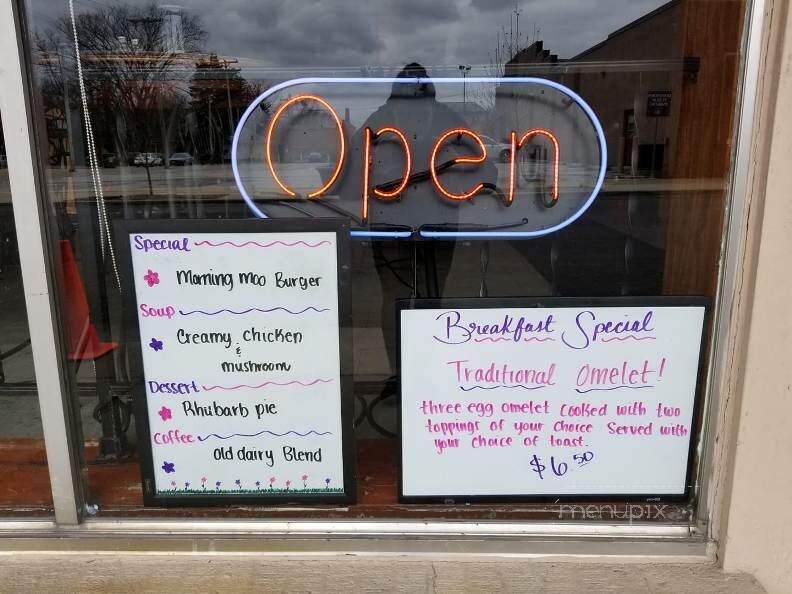 Open
Special
Morning moo Burger
Soup
Creamy chicken
&
mushroom
Dessert
Rhubarb pie
Coffee
old dairy Blend
Breakfast Special
Traditional Omelet!
three egg omelet cooked with two
toppings of your choice served with
your choice of toast.
$6.50
menupix